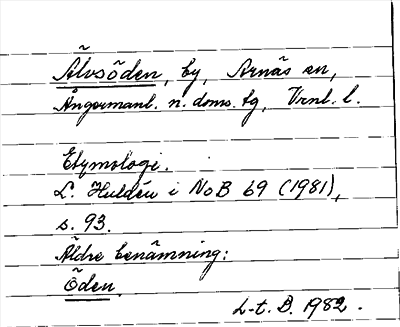 Älvsöden, by, Arnäs sn,
Ångermanl. n. doms. tg, Vrnl. l.
Etymologi.
L. Huldén i NoB 69 (1981),
s. 93.
Äldre benämning:
Öden.
L-t. D. 1982.